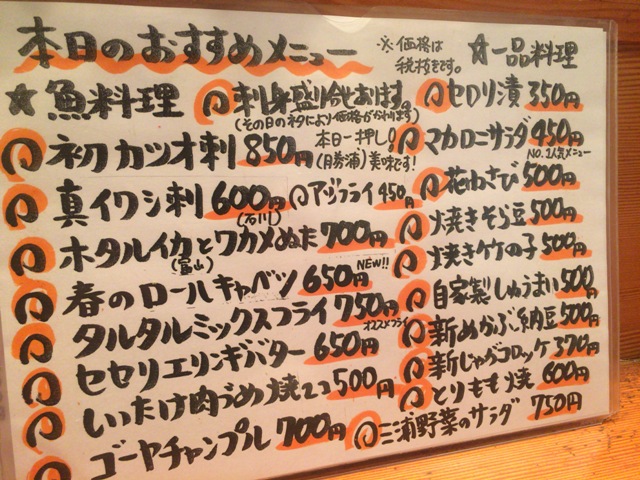 本日のおすすめメニュー
※価格は
税抜きです。
☆魚料理
刺身盛り合せあります。
(その日のネタにより価格がかわります)
初カツオ刺 850円
本日一押し!
(勝浦)美味です!
真イワシ刺 600円
(石川)
アジフライ 450円
ホタルイカとワカメぬた 700円
(富山)
春のロールキャベツ 650円
NEW!!
タルタルミックスフライ 750円
オススメフライ
セセリエリンギバター 650円
しいたけ肉づめ焼 2コ 500円
ゴーヤチャンプル 700円
☆一品料理
セロリ漬 350円
マカロニサラダ 450円
NO.1人気メニュー
花わさび 500円
焼きそら豆 500円
焼きタケの子 500円
自家製しゅうまい 500円
新めかぶ納豆 500円
新じゃがコロッケ 370円
とりもも焼 600円
三浦野菜のサラダ 750円